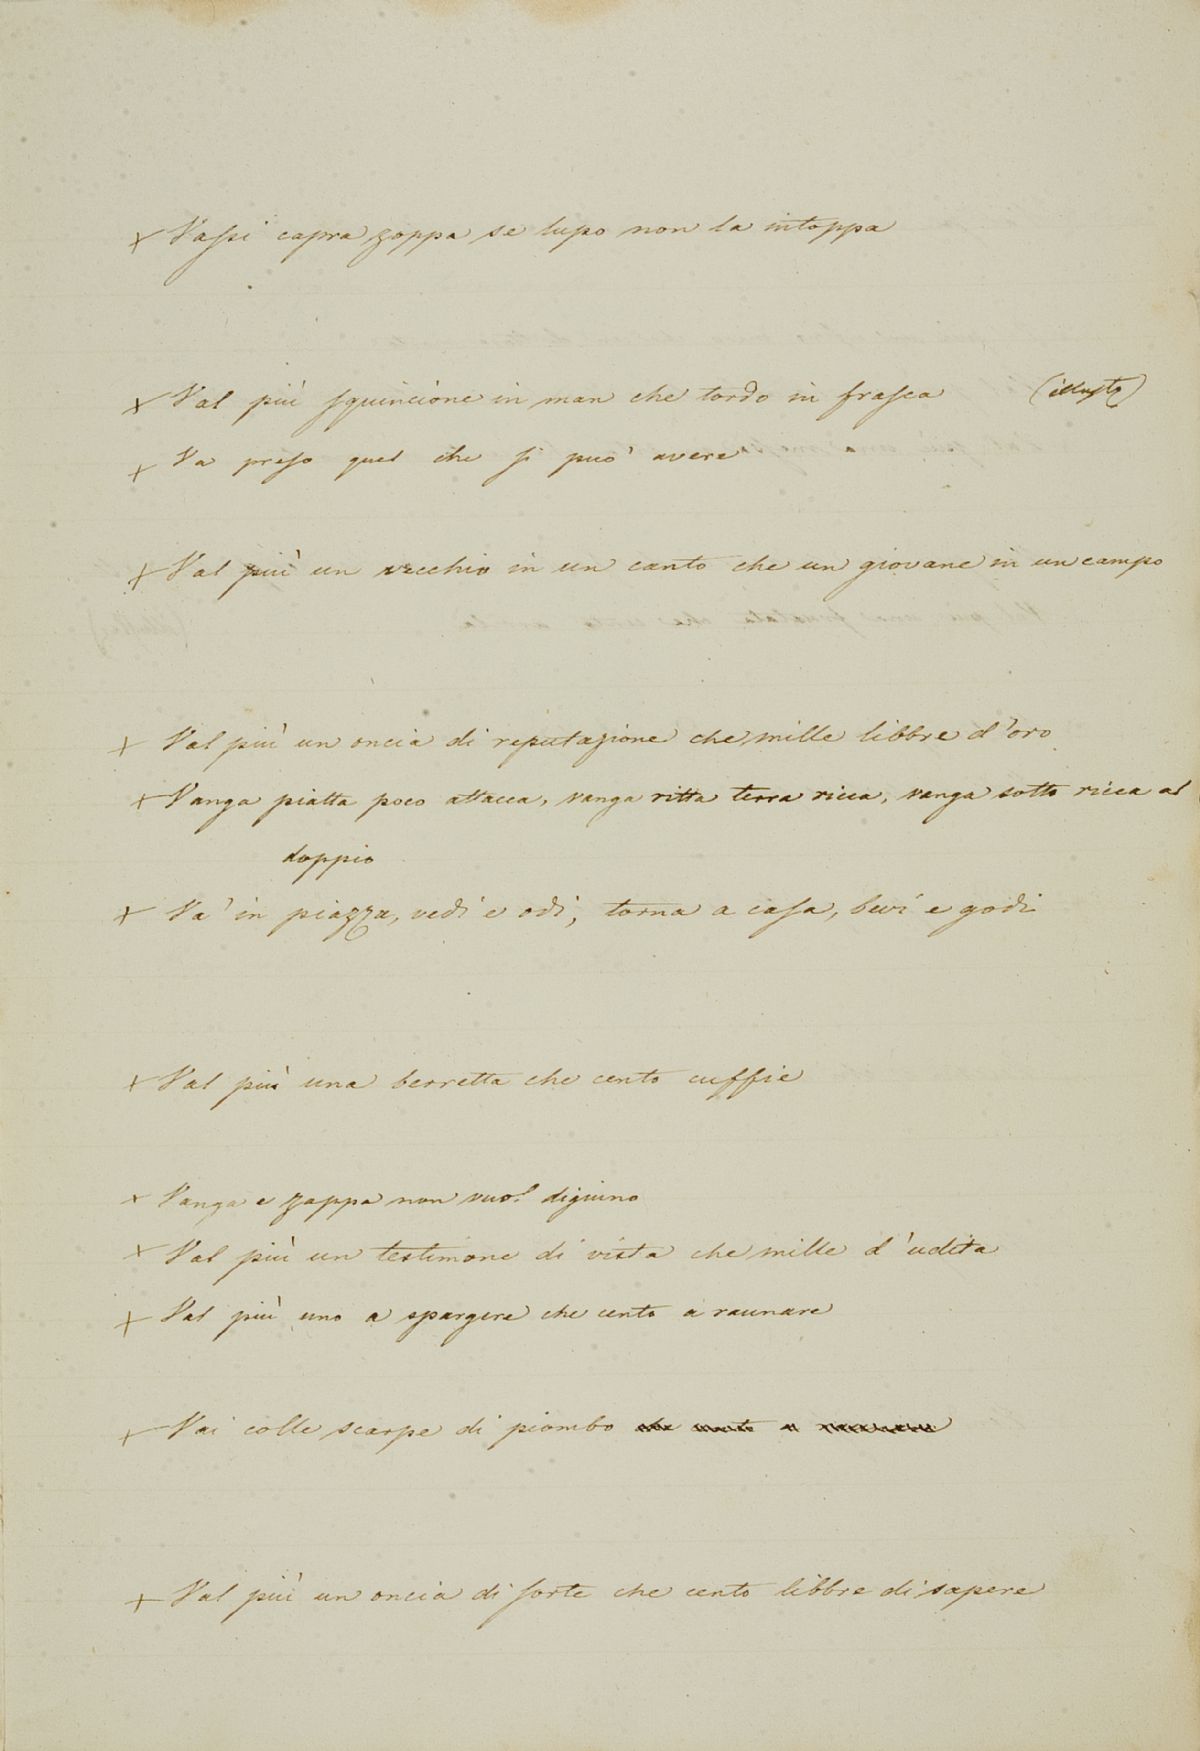 × Vassi capra zoppa se lupo non la intoppa
× Val più squincione in man che tordo in frasca (illust)
× Va preso quel che si può avere
× Val più un vecchio in un canto che un giovane in un campo
× Val più un oncia di reputazione che mille libbre d'oro
× Vanga piatta poco attacca, vanga ritta terra ricca, vanga sotto ricca al
doppio
× Va' in piazza, vedi e odi, torna a casa, bevi e godi
× Val più una berretta che cento cuffie
× Vanga e zappa non vuol digiuno
× Val più un testimone di vista che mille d'udita
× Val più uno a spargere che cento a raunare
× Vai colle scarpe di piombo
× Val più un oncia di sorte che cento libbre di sapere